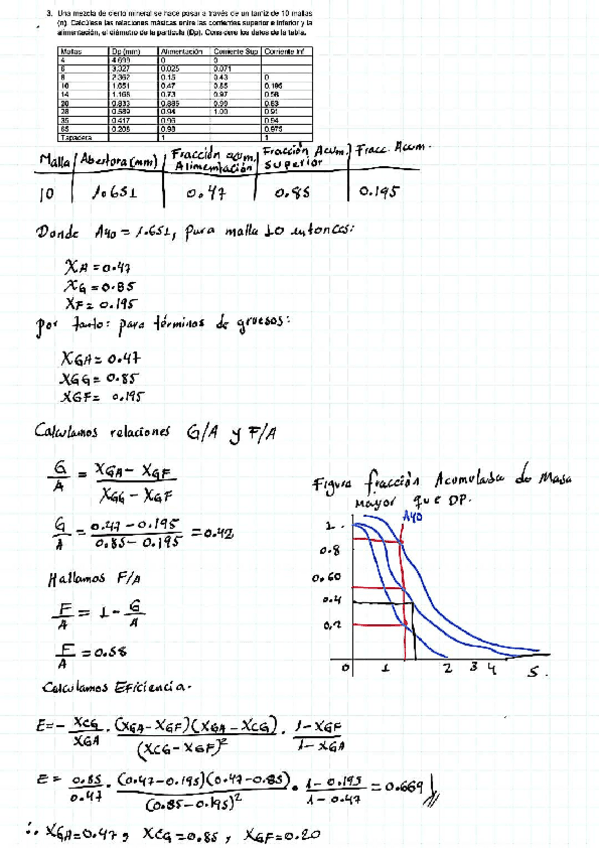 3. Una mezcla de cierto mineral se hace pasar a través de un tamiz de 10 mallas
(n). Calcúlese las relaciones másicas entre las corrientes superior e inferior y la
alimentación, el diámetro de la partícula (Dp). Considere los datos de la tabla.
Mallas Dp (mm) Alimentación Corriente Sup Corriente Inf
4 4.699 0 0
6 3.327 0.025 0.071
8 2.362 0.15 0.43 0
10 1.651 0.47 0.85 0.195
14 1.168 0.73 0.97 0.58
20 0.833 0.885 0.99 0.83
28 0.589 0.94 1.00 0.91
35 0.417 0.96 0.94
65 0.208 0.98 0.975
Tapadera 1 1
Malla Abertora (mm) Fracción acum. Alimentación Fracción Acum. Superior Fracc. Acum.
10 1.651 0.47 0.85 0.195
Donde A40 = 1.651, para malla 10 entonces:
XA = 0.47
XG = 0.85
XF = 0.195
por tanto: para términos de gruesos:
XGA = 0.47
XGG = 0.85
XGF = 0.195
Calculamos relaciones G/A y F/A
G/A = XGA - XGF / XGG - XGF
G/A = 0.47 - 0.195 / 0.85 - 0.195 = 0.42
Hallamos F/A
F/A = 1 - G/A
F/A = 0.58
Figura fracción Acumulada de Masa
mayor que DP.
A40
1.
0.8
0.60
0.4
0.2
0 1 2 3 4 5.
Calculamos Eficiencia.
E = - XCG/XGA . (XGA - XGF)(XGA - XCG) / (XCG - XGF)² . 1 - XGF / 1 - XGA
E = 0.85/0.47 . (0.47 - 0.195)(0.47 - 0.85) / (0.85 - 0.195)² . 1 - 0.195 / 1 - 0.47 = 0.669
∴ XGA = 0.47, XCG = 0.85, XGF = 0.20